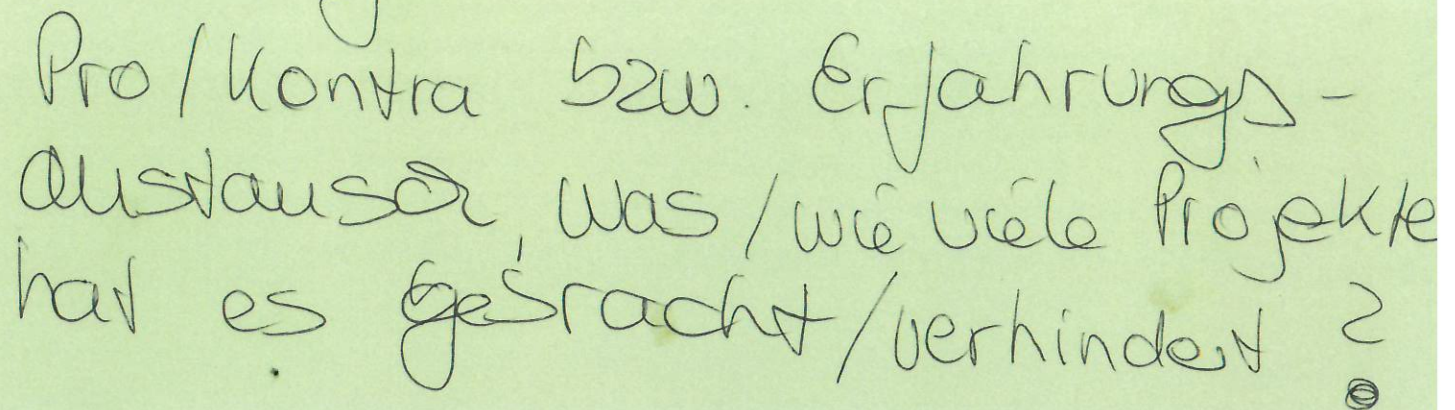 Pro/Kontra bzw. Erfahrungs-
austausch, was/wie viele Projekte
hat es gebracht/verhindert?